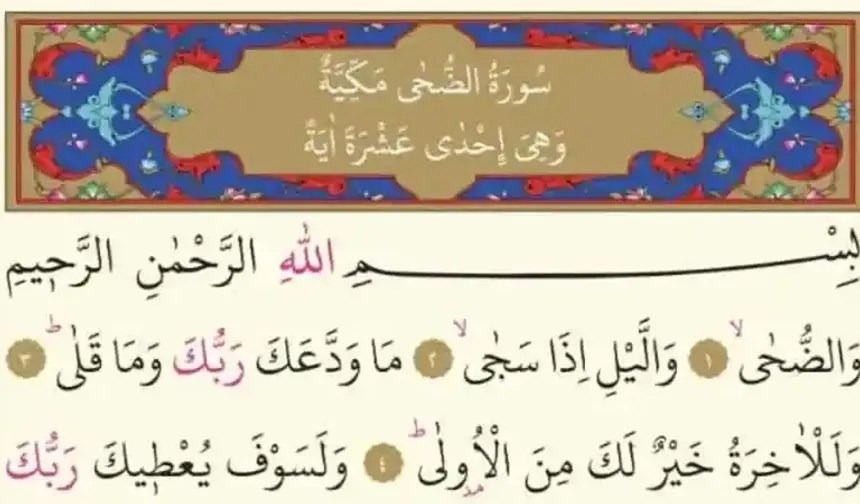 سُورَةُ الضُّحٰى مَكِّيَّةٌ
وَهِيَ إِحْدٰى عَشْرَةَ اٰيَةً
بِسْمِ اللّٰهِ الرَّحْمٰنِ الرَّح۪يمِ
وَالضُّحٰىۙ ﴿١﴾ وَالَّيْلِ اِذَا سَجٰىۙ ﴿٢﴾ مَا وَدَّعَكَ رَبُّكَ وَمَا قَلٰىۜ ﴿٣﴾
وَلَلْاٰخِرَةُ خَيْرٌ لَكَ مِنَ الْاُو۫لٰىۜ ﴿٤﴾ وَلَسَوْفَ يُعْط۪يكَ رَبُّكَ